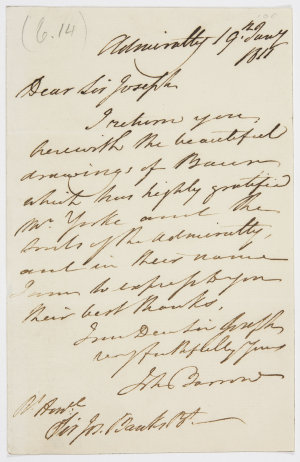 (6.14)
Admiralty 19th Jany
1811
Dear Sir Joseph
I return you
herewith the beautiful
drawings of Bauer
which has highly gratified
Mr. Yorke and the
Lords of the Admiralty,
and in their name
I am to express to you
their best thanks.
I am Dear Sir Joseph
very faithfully Yours
Jn Barrow
Rt. Honble
Sir Jos. Banks Bt.